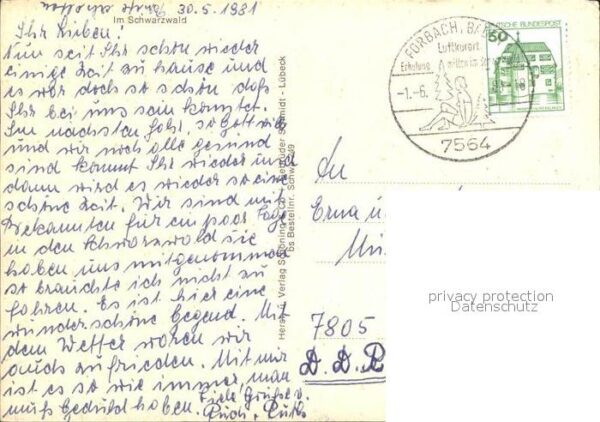 30.5.1981
Im Schwarzwald
Ihr Lieben!
Nun seit Ihr schon wieder
einige Zeit zu hause und
es war doch so schön daß
Ihr bei uns sein konntet.
Im nächsten Jahr, so Gott will
und wir noch alle gesund
sind kommt Ihr wieder und
dann wird es wieder so eine
schöne Zeit. Wir sind mit
Bekannten für ein paar Tage
in den Schwarzwald sie
haben uns mitgenommen
so brauchte ich nicht zu
fahren. Es ist hier eine
wunderschöne Gegend. Mit
dem Wetter waren wir
auch zufrieden. Mit mir
ist es so wie immer, man
muß Geduld haben. Viele Grüße v.
Rudi + Ruth
Verlag Schöning & Co + Gebrüder Schmidt · Lübeck
Bestellnr. Schw
FORBACH, BADEN
Luftkurort
-1.-6.
7564
DEUTSCHE BUNDESPOST
50
An
Erna u
7805
D. D. R
privacy protection
Datenschutz